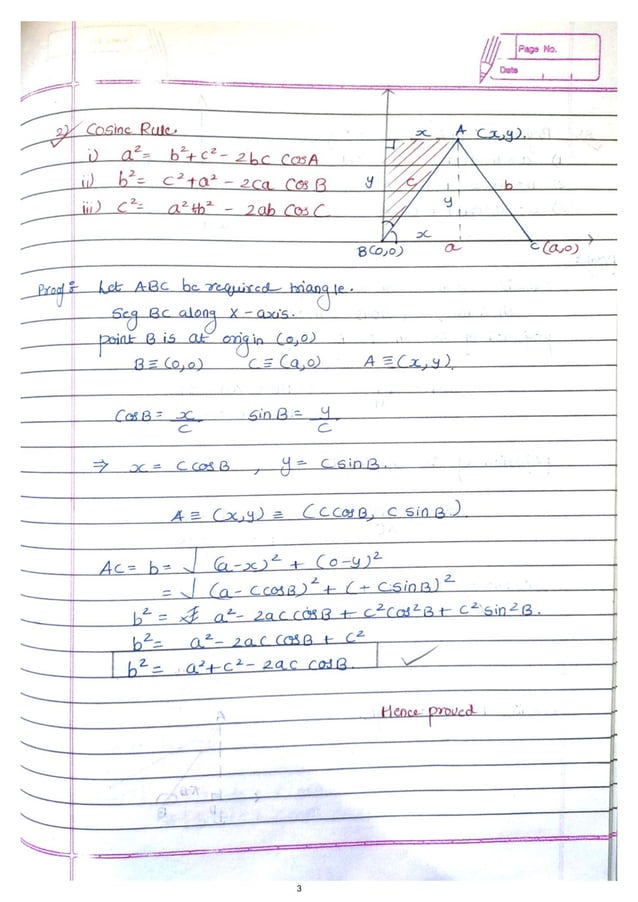 Page No.
Date
2) Cosine Rule.
i) a² = b²+c² - 2bc cosA
ii) b² = c²+a² - 2ca cosB
iii) c² = a²+b² - 2ab cosC
x A (x,y).
y c y b
x
B(0,0) a C(a,0)
Proof: Let ABC be required triangle.
Seg BC along X-axis.
point B is at origin (0,0)
B≡(0,0) C≡(a,0) A≡(x,y).
cosB = x/c sinB = y/c
⇒ x = c cosB , y = c sinB.
A ≡ (x,y) ≡ (c cosB, c sinB)
AC = b = √(a-x)² + (0-y)²
= √(a-c cosB)² + (-c sinB)²
b² = a² - 2ac cosB + c²cos²B + c²sin²B.
b² = a² - 2ac cosB + c²
b² = a²+c² - 2ac cosB. ✓
Hence proved
3